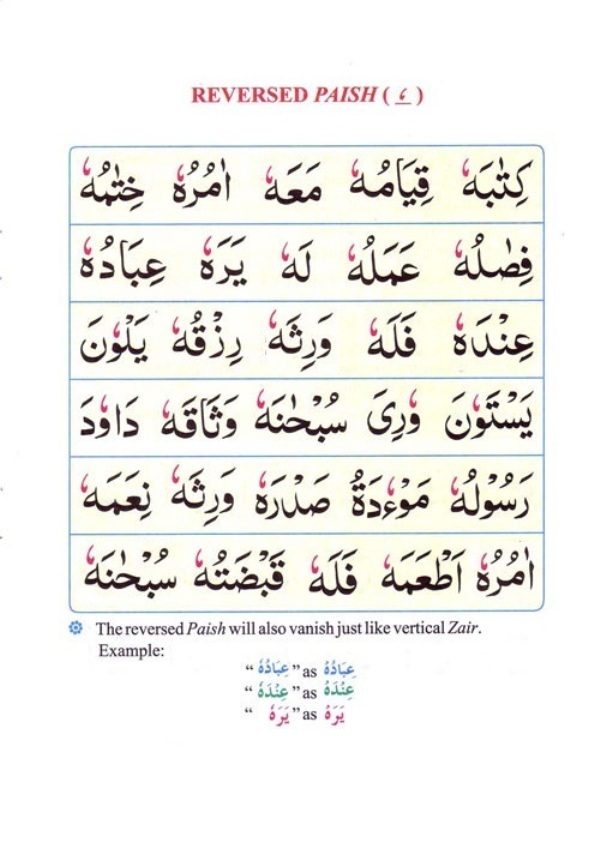 REVERSED PAISH ( ـٗ )
كِتٰبَهٗ قِيَامُهٗ مَعَهٗ اٰمُرُهٗ خِتٰمُهٗ
فِصٰلُهٗ عَمَلُهٗ لَهٗ يَرَهٗ عِبَادُهٗ
عِنْدَهٗ فَلَهٗ وَرِثَهٗ رِزْقُهٗ يَلْوٗنَ
يَسْتَوٗنَ وٗرِىَ سُبْحٰنَهٗ وَثَاقَهٗ دَاوٗدَ
رَسُوْلُهٗ مَوْءٗدَةُ صَدْرَهٗ وَرِثَهٗ نِعَمَهٗ
اٰمُرُهٗ اَطْعَمَهٗ فَلَهٗ قَبْضَتُهٗ سُبْحٰنَهٗ
The reversed Paish will also vanish just like vertical Zair.
Example:
“ عِبَادُهٗ ” as عِبَادُهْ
“ عِنْدَهٗ ” as عِنْدَهْ
“ يَرَهٗ ” as يَرَهْ